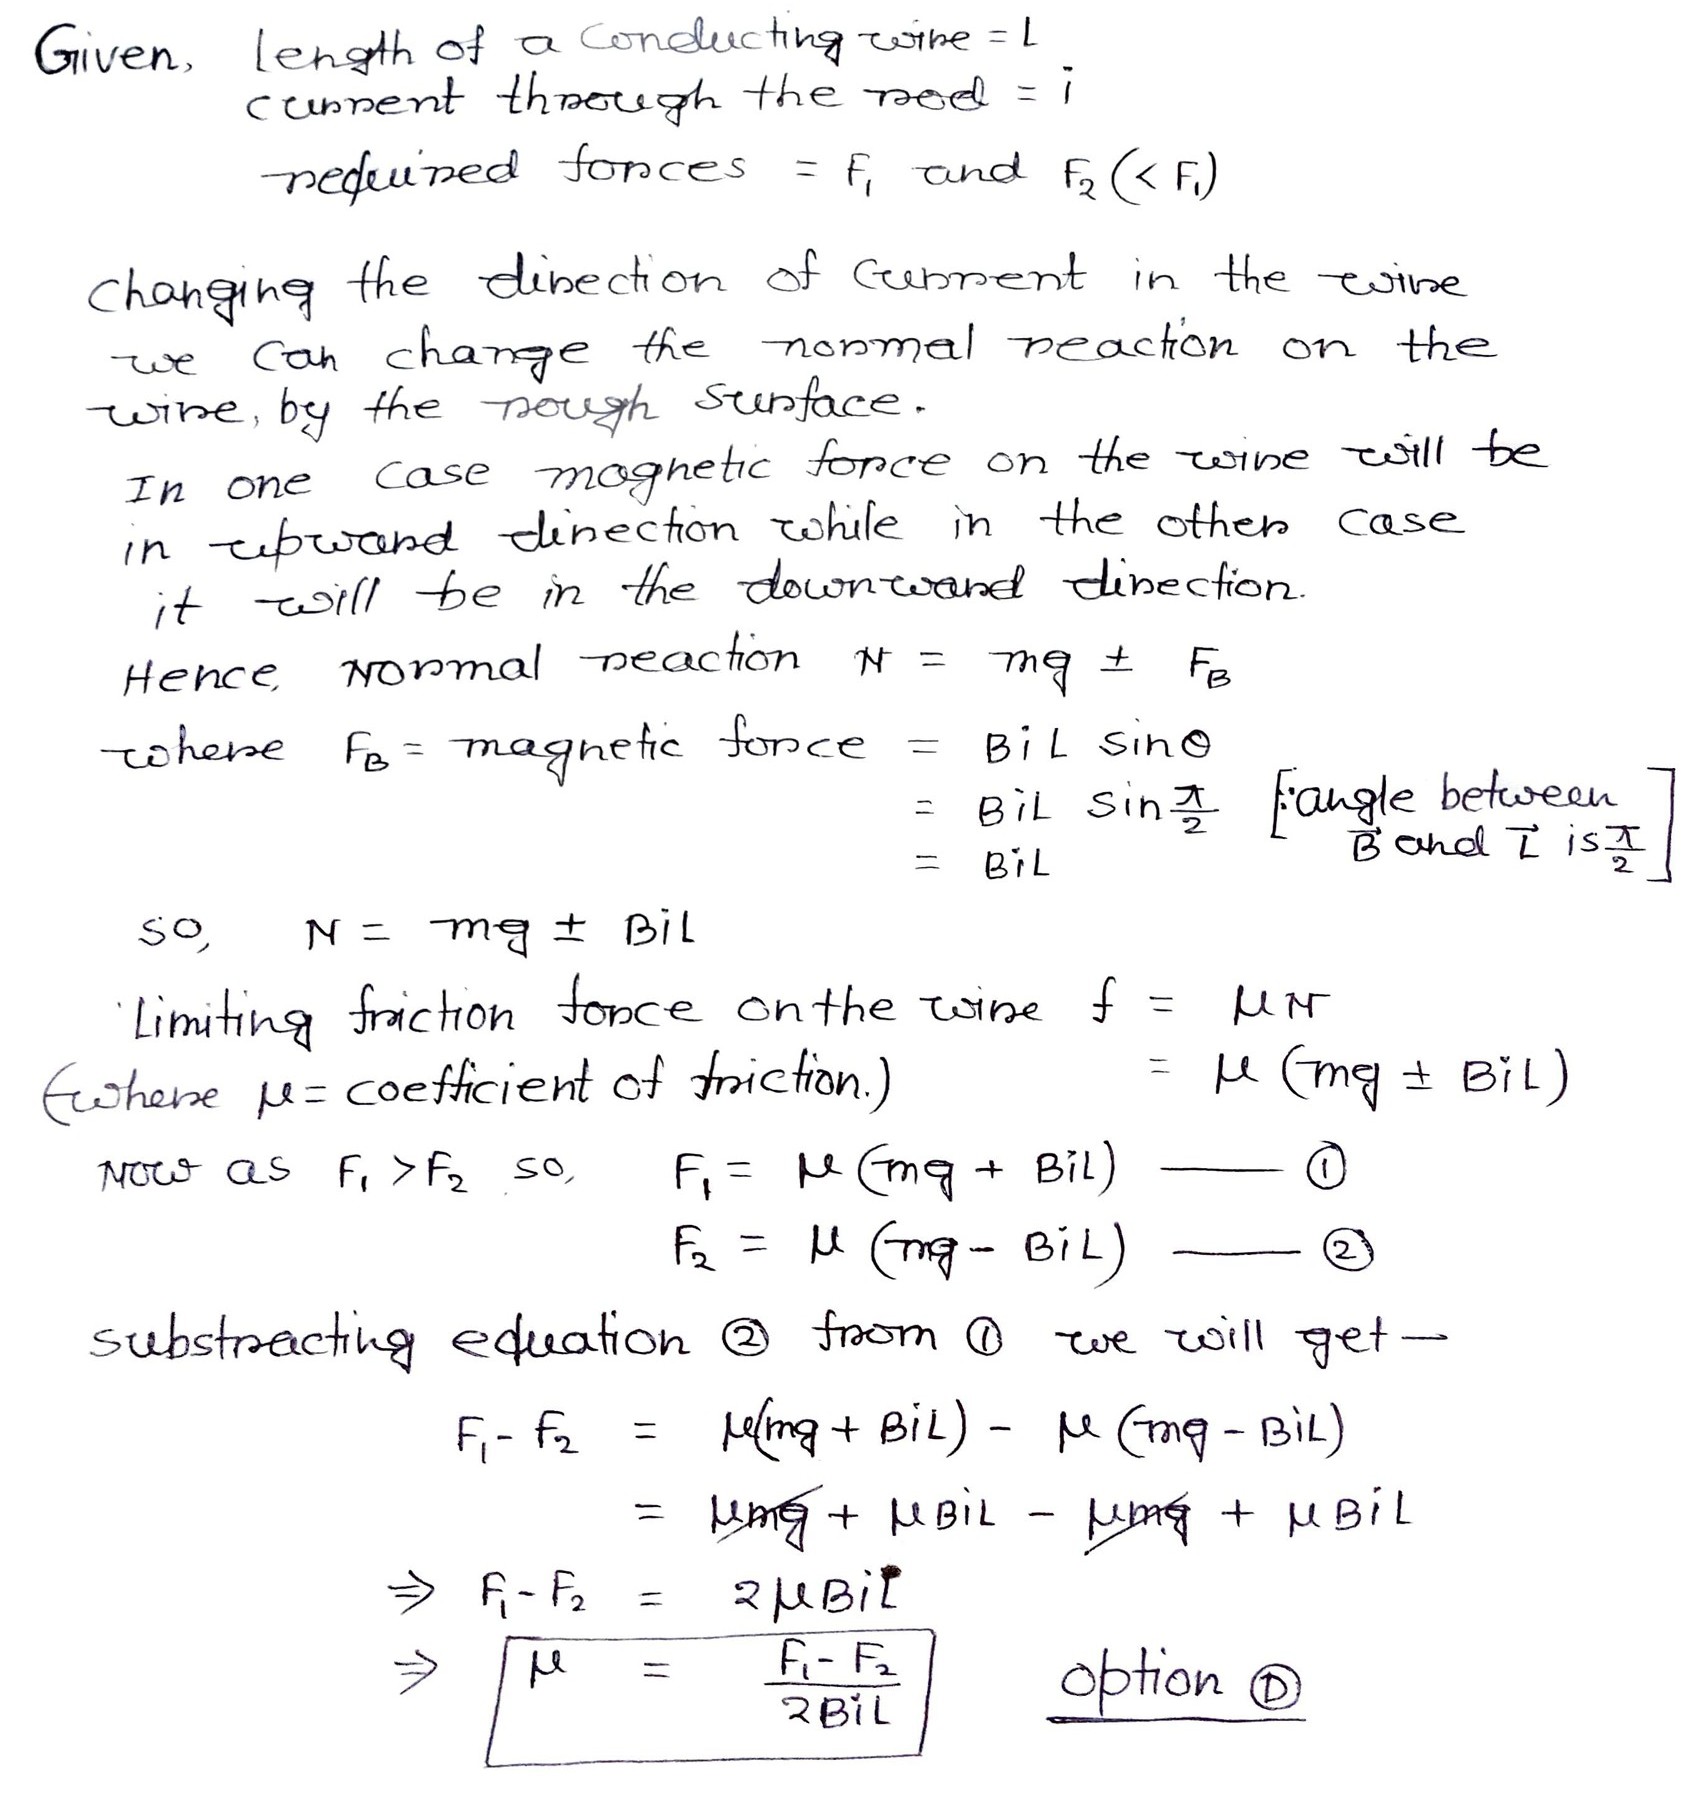 Given, length of a conducting wire = L
current through the rod = i
required forces = F₁ and F₂ (< F₁)
Changing the direction of current in the wire
we can change the normal reaction on the
wire, by the rough surface.
In one case magnetic force on the wire will be
in upward direction while in the other case
it will be in the downward direction.
Hence, Normal reaction N = mg ± F_B
where F_B = magnetic force = BiL sinθ
= BiL sin π/2 [∵ angle between B⃗ and L⃗ is π/2]
= BiL
so, N = mg ± BiL
Limiting friction force on the wire f = μN
(where μ = coefficient of friction.) = μ (mg ± BiL)
Now as F₁ > F₂ so, F₁ = μ (mg + BiL) —— ①
F₂ = μ (mg - BiL) —— ②
substracting equation ② from ① we will get —
F₁ - F₂ = μ(mg + BiL) - μ (mg - BiL)
= μmg + μBiL - μmg + μBiL
⇒ F₁ - F₂ = 2μBiL
⇒ μ = (F₁ - F₂)/(2BiL) option Ⓓ